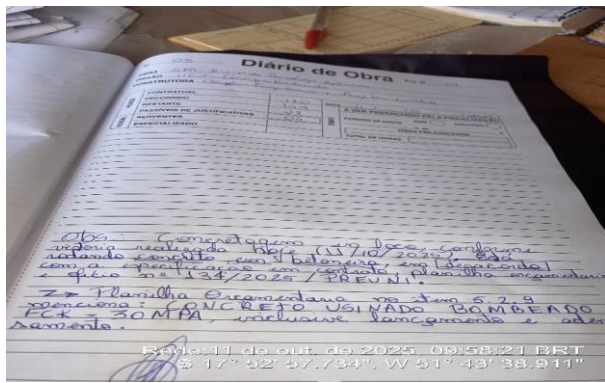 Diário de Obra
OBRA
ÓRGÃO
CONSTRUTORA
CONTRATUAL
DECORRIDO
RESTANTE
PASSÍVEIS DE JUSTIFICATIVAS
SERVENTES
ESPECIALIZADO
A SER PREENCHIDO PELA FISCALIZAÇÃO
TOTAL DE HORAS
Obs: Concretagem in loco, conforme
vistoria realizada hoje (11/10/2025) está
rodando concreto em betoneira, em desacordo
com a especificação em contrato, planilha orçamentária
e ofício nº 134/2025/PREVNI.
Planilha Orçamentaria no item 5.2.9
menciona: CONCRETO USINADO BOMBEADO
FCK = 30MPA, inclusive lançamento e aden
samento.
Rede:11 de out. de 2025, 09:58:21 BRT
S 17° 52' 57.734", W 51° 43' 38.911"